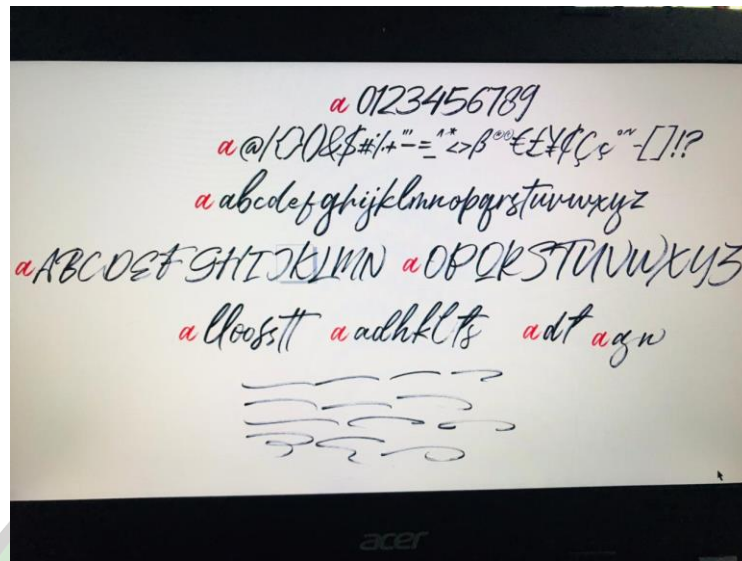 a 0123456789
a @/{}()&$#%+"'-=_^*<>β®©€£¥¢Çç°~-[]!?
a abcdefghijklmnopqrstuvwxyz
a ABCDEFGHIJKLMN a OPQRSTUVWXYZ
a lloosstt a adhklts a dt a gn
acer